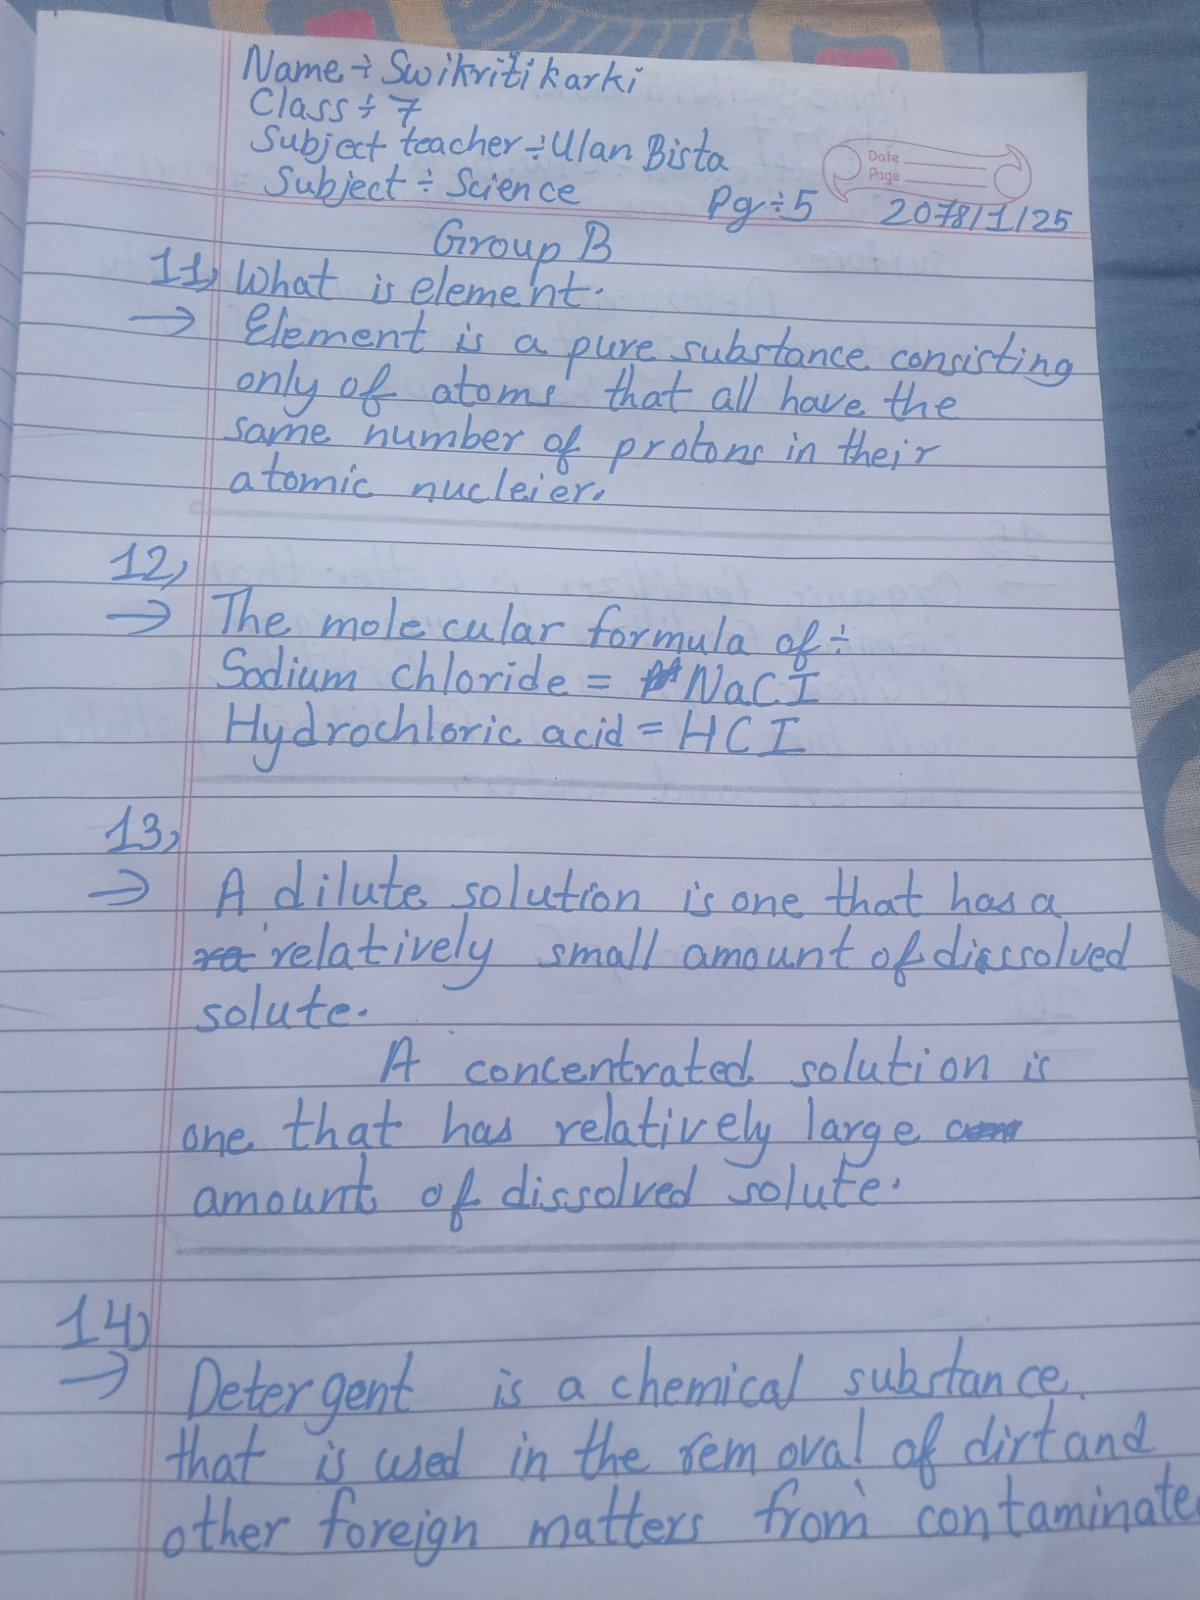 Name ÷ Swikriti karki
Class ÷ 7
Subject teacher ÷ Ulan Bista
Subject ÷ Science
Date
Page
Pg ÷ 5 2078/1/25
Group B
11, What is element.
→ Element is a pure substance consisting
only of atoms that all have the
same number of protons in their
atomic nucleier.
12,
→ The molecular formula of ÷
Sodium chloride = NaCI
Hydrochloric acid = HCI
13,
→ A dilute solution is one that has a
relatively small amount of disssolved
solute.
A concentrated solution is
one that has relatively large
amount of dissolved solute.
14)
→ Detergent is a chemical substance
that is used in the removal of dirt and
other foreign matters from contaminate